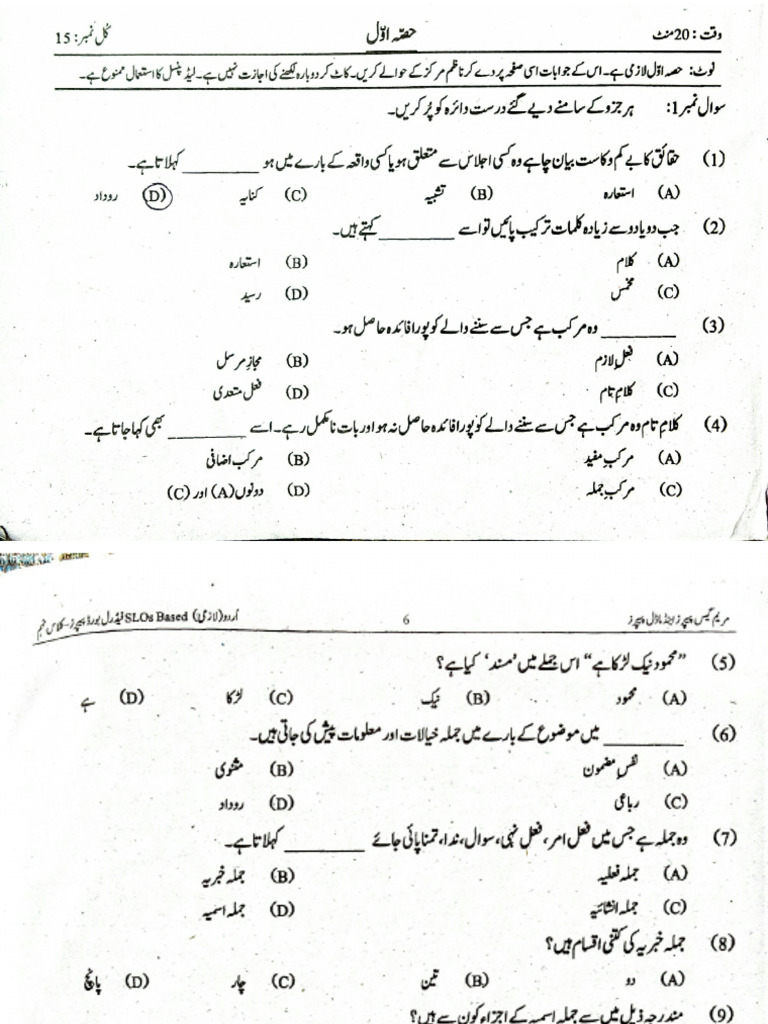 وقت : 20 منٹ حصّہ اوّل کل نمبر : 15
نوٹ: حصہ اوّل لازمی ہے۔ اس کے جوابات اسی صفحہ پر دے کر ناظم مرکز کے حوالے کریں۔ کاٹ کر دوبارہ لکھنے کی اجازت نہیں ہے۔ لیڈ پنسل کا استعمال ممنوع ہے۔
سوال نمبر 1: ہر جزو کے سامنے دیے گئے درست دائرہ کو پُر کریں۔
(1) حقائق کا بے کم و کاست بیان چاہے وہ کسی اجلاس سے متعلق ہو یا کسی واقعہ کے بارے میں ہو ________ کہلاتا ہے۔
(A) استعارہ (B) تشبیہ (C) کنایہ (D) روداد
(2) جب دو یا دو سے زیادہ کلمات ترکیب پائیں تو اسے ________ کہتے ہیں۔
(A) کلام (B) استعارہ
(C) مخمس (D) رسید
(3) ________ وہ مرکب ہے جس سے سننے والے کو پورا فائدہ حاصل ہو۔
(A) فعل لازم (B) مجاز مرسل
(C) کلامِ تام (D) فعل متعدی
(4) کلامِ تام وہ مرکب ہے جس سے سننے والے کو پورا فائدہ حاصل نہ ہو اور بات نامکمل رہے۔ اسے ________ بھی کہا جاتا ہے۔
(A) مرکبِ مفید (B) مرکب اضافی
(C) مرکبِ جملہ (D) دونوں (A) اور (C)
مریم گیس پیپرز اینڈ ماڈل پیپرز 6 اُردو (لازمی) SLOs Based فیڈرل بورڈ پیپرز - کلاس نہم
(5) ”محمود نیک لڑکا ہے“ اس جملے میں ’مسند‘ کیا ہے؟
(A) محمود (B) نیک (C) لڑکا (D) ہے
(6) ________ میں موضوع کے بارے میں جملہ خیالات اور معلومات پیش کی جاتی ہیں۔
(A) نفسِ مضمون (B) مثنوی
(C) رباعی (D) روداد
(7) وہ جملہ ہے جس میں فعل امر، فعل نہی، سوال، ندا، تمنا پائی جائے ________ کہلاتا ہے۔
(A) جملہ فعلیہ (B) جملہ خبریہ
(C) جملہ انشائیہ (D) جملہ اسمیہ
(8) جملہ خبریہ کی کتنی اقسام ہیں؟
(A) دو (B) تین (C) چار (D) پانچ
(9) مندرجہ ذیل میں سے جملہ اسمیہ کے اجزاء کون سے ہیں؟